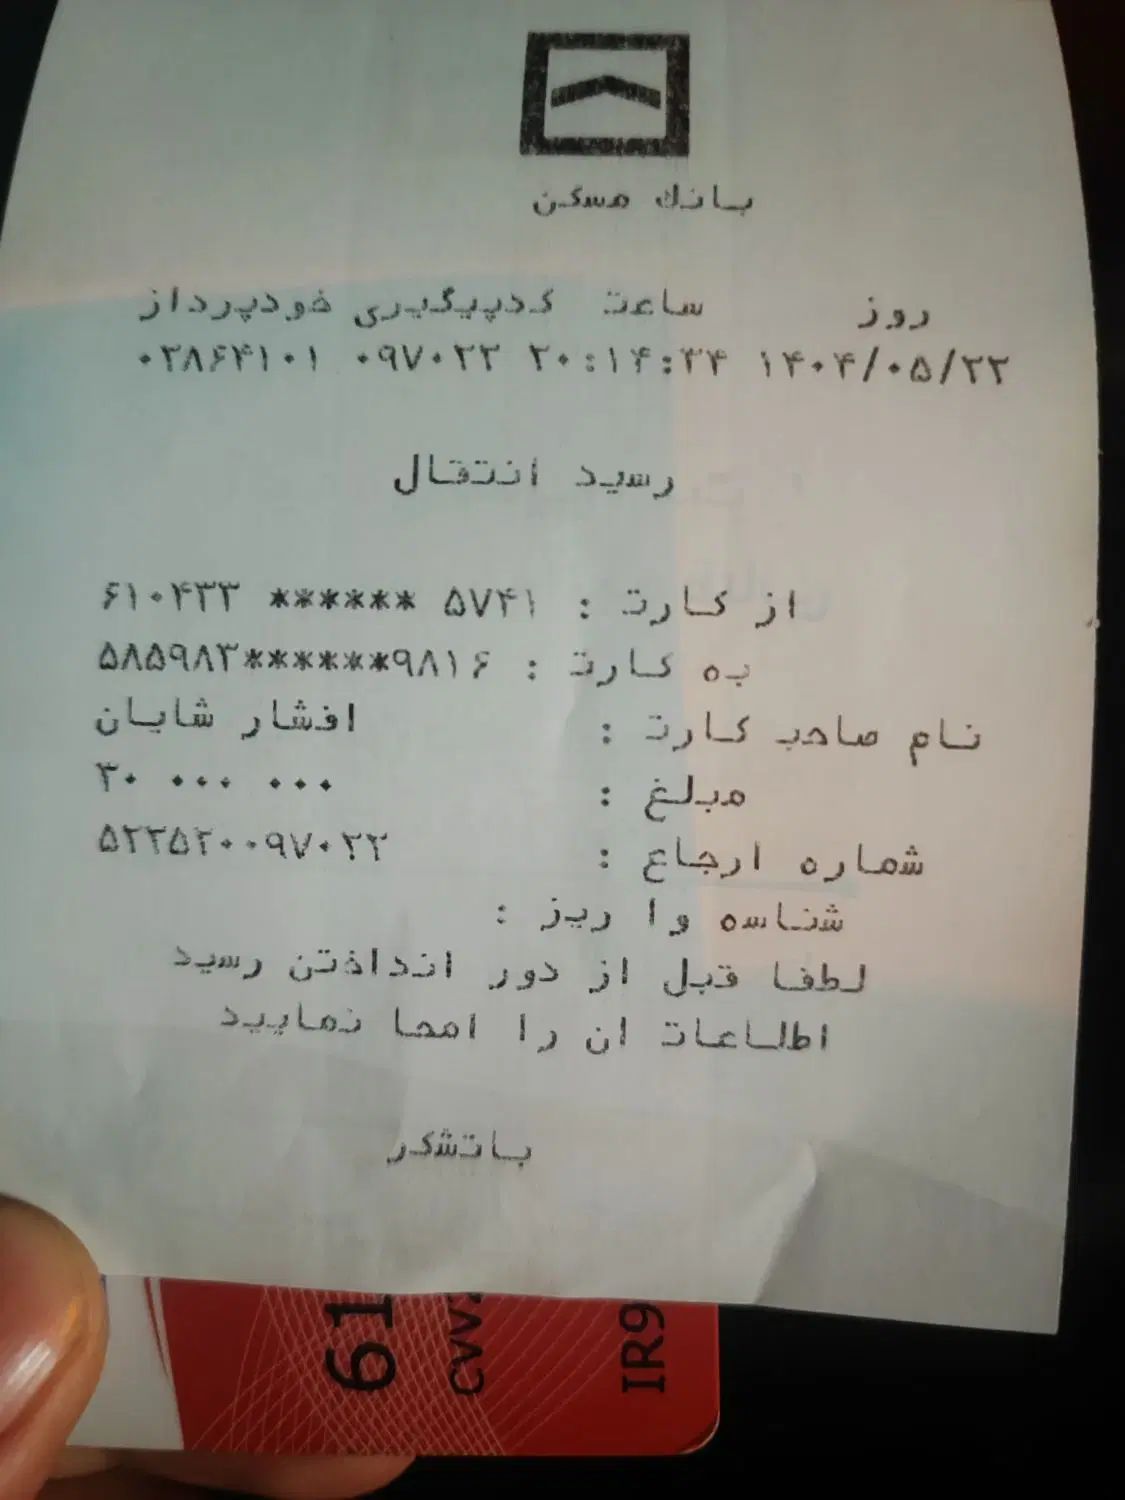 بانك مسکن
روز ساعت کدپیگیری خودپرداز
۱۴۰۴/۰۵/۲۲ ۲۰:۱۴:۲۴ ۰۹۷۰۲۲ ۰۲۸۶۴۱۰۱
رسید انتقال
از کارت : ۶۱۰۴۳۳ ****** ۵۷۴۱
به کارت : ۵۸۵۹۸۳******۹۸۱۶
نام صاحب کارت : افشار شایان
مبلغ : ۳۰ ۰۰۰ ۰۰۰
شماره ارجاع : ۵۲۲۵۲۰۰۹۷۰۲۲
شناسه وا ریز :
لطفا قبل از دور انداختن رسید
اطلاعات ان را امحا نمایید
باتشکر
61
CVV2
IR9